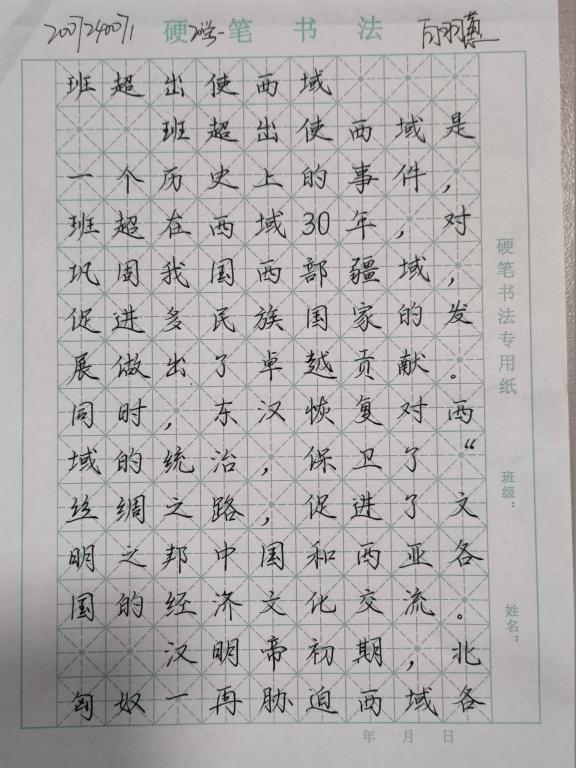 2007240071 硬笔书法
班超出使西域
班超出使西域是
一个历史上的事件，
班超在西域30年，对
巩固我国西部疆域，
促进多民族国家的发
展做出了卓越贡献。
同时，东汉恢复对西
域的统治，保卫了“
丝绸之路，促进了文
明之邦中国和西亚各
国的经济文化交流。
汉明帝初期，北
匈奴一再胁迫西域各
硬笔书法专用纸
班级：
姓名：
年 月 日